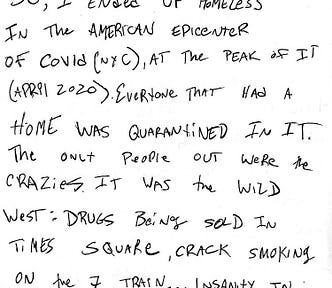 SO, I ENDED UP HOMELESS
IN THE AMERICAN EPICENTER
OF COVID (NYC), AT THE PEAK OF IT
(APRIL 2020). EVERYONE THAT HAD A
HOME WAS QUARANTINED IN IT.
THE ONLY PEOPLE OUT WERE THE
CRAZIES. IT WAS THE WILD
WEST: DRUGS BEING SOLD IN
TIMES SQUARE, CRACK SMOKING
ON THE 7 TRAIN... INSANITY IN